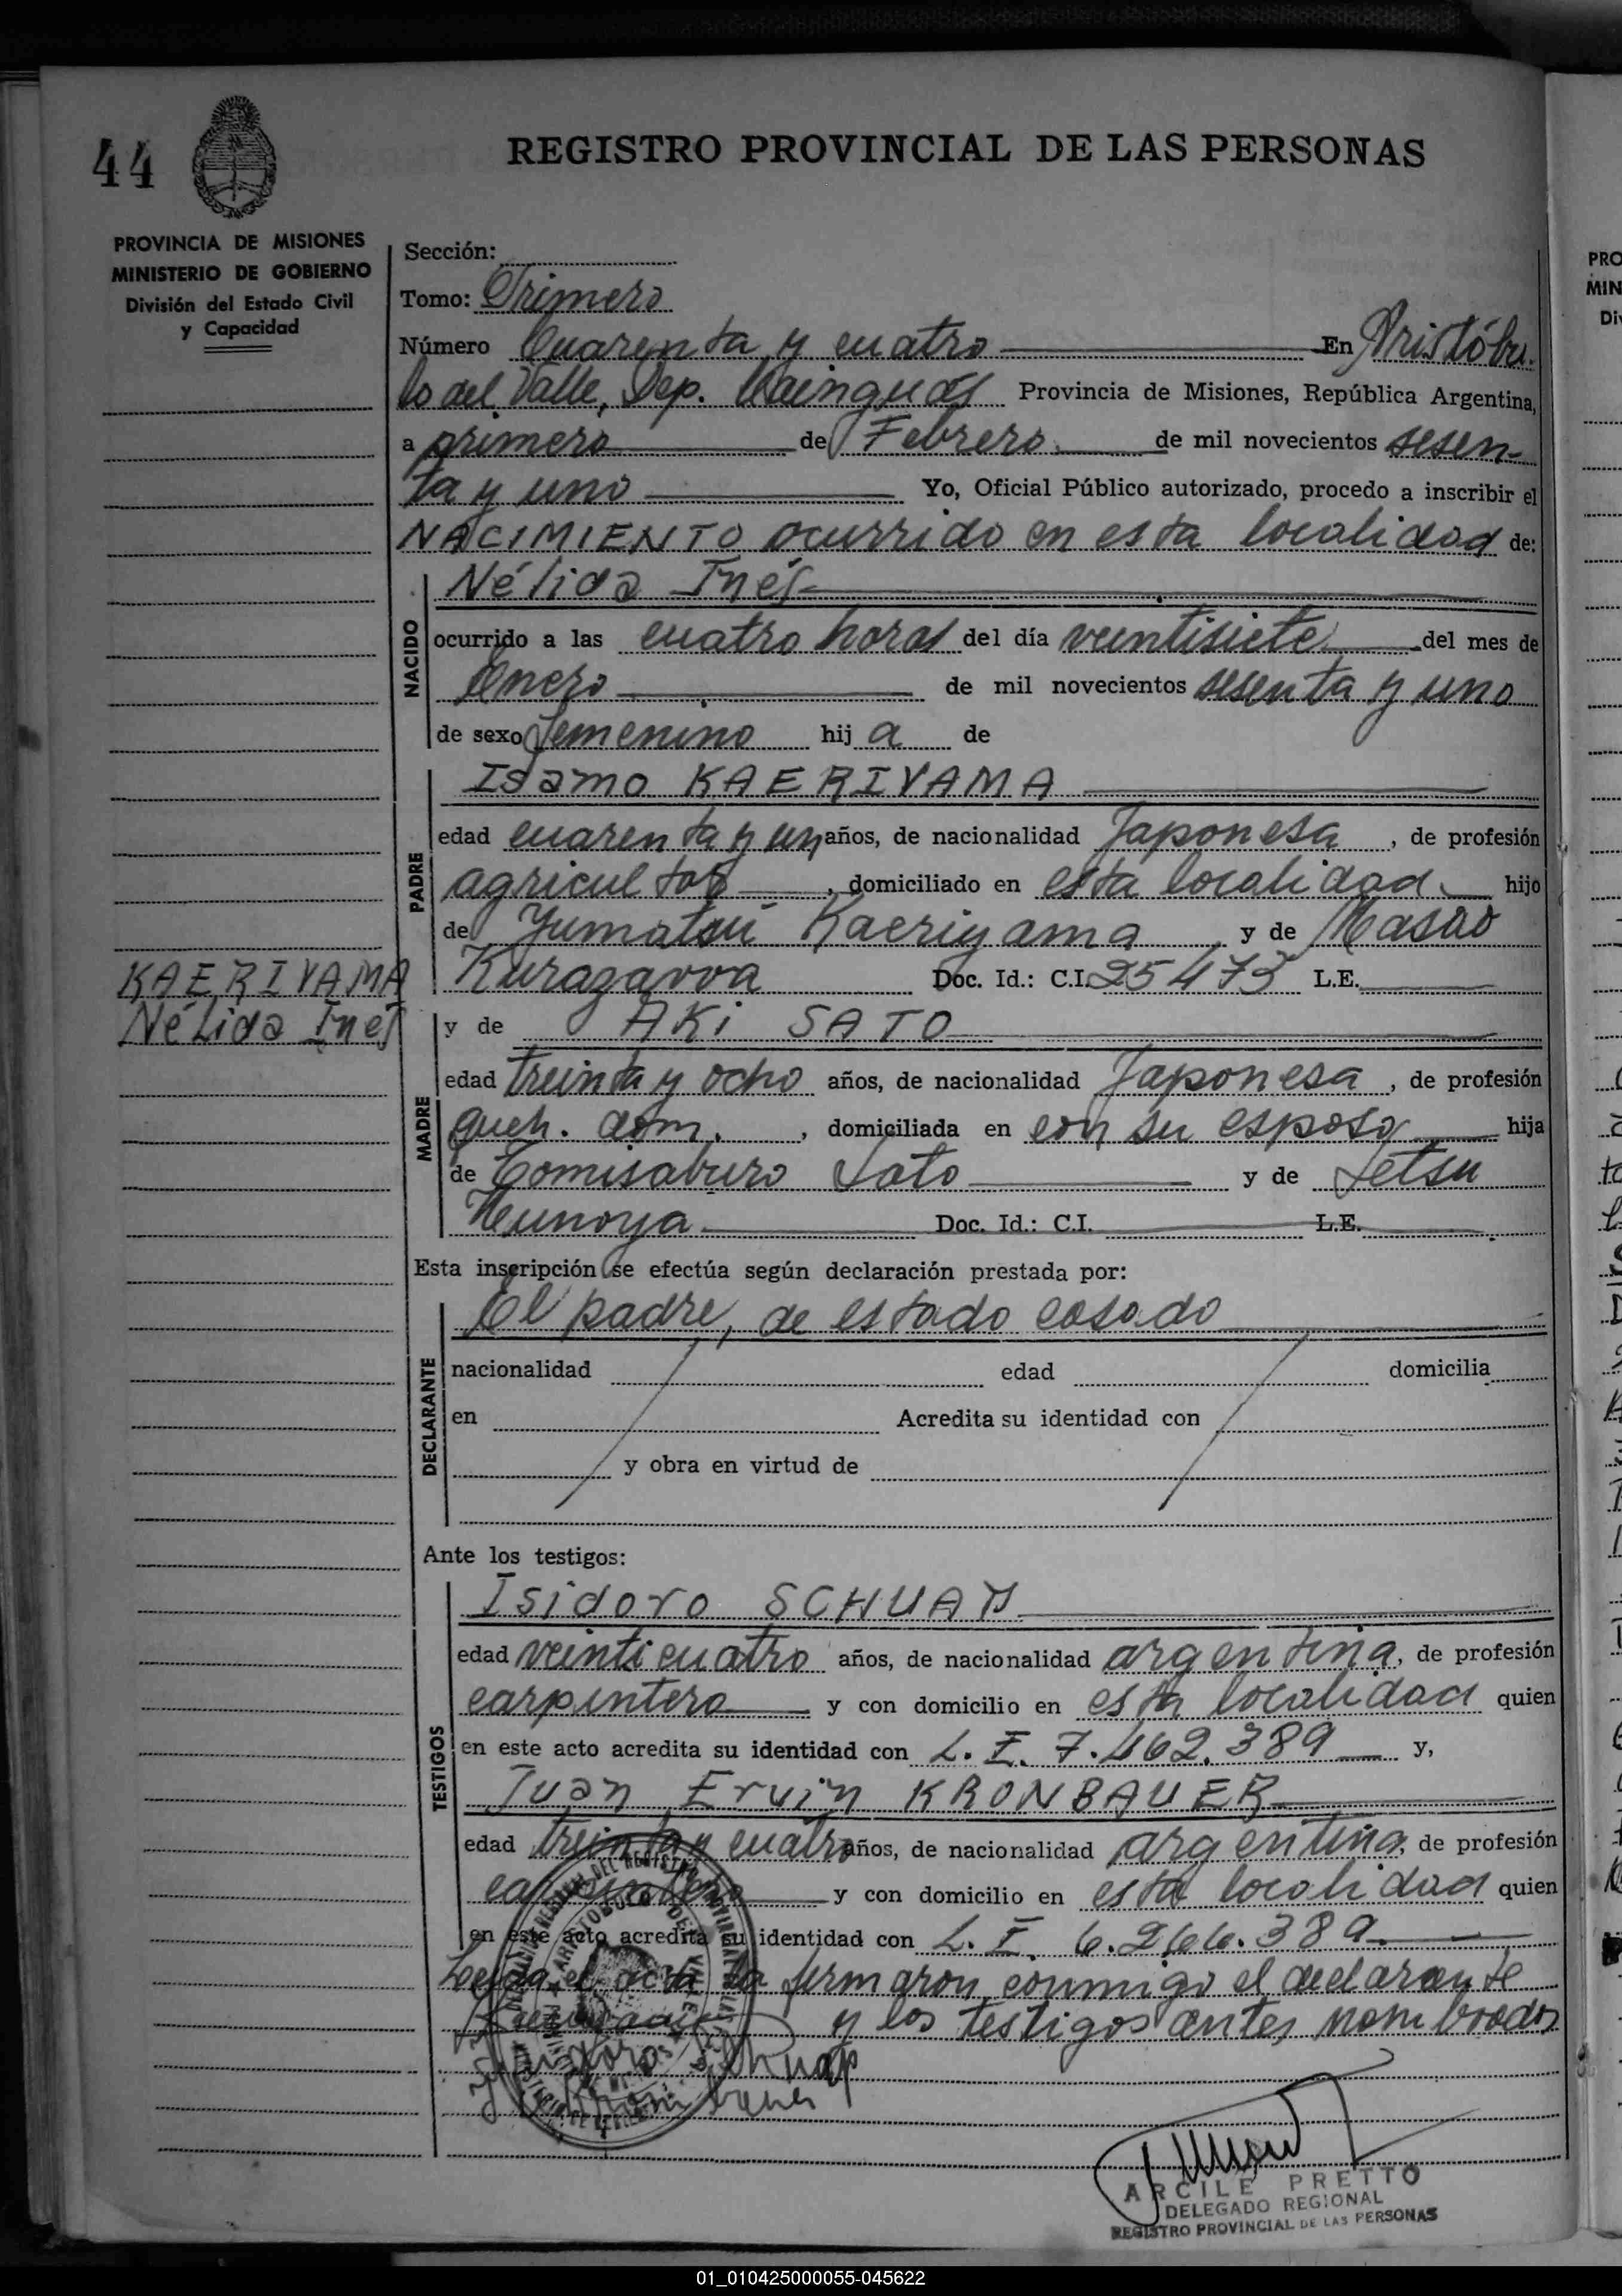 44
REGISTRO PROVINCIAL DE LAS PERSONAS
PROVINCIA DE MISIONES
MINISTERIO DE GOBIERNO
División del Estado Civil
y Capacidad
KAERIYAMA
Nélida Inés
Sección:
Tomo: Primero
Número Cuarenta y cuatro En Aristóbu-
lo del Valle, Dep. Kainguás Provincia de Misiones, República Argentina,
a primero de Febrero de mil novecientos sesen-
ta y uno Yo, Oficial Público autorizado, procedo a inscribir el
NACIMIENTO ocurrido en esta localidad de:
NACIDO
Nélida Inés
ocurrido a las cuatro horas del día veintisiete del mes de
Enero de mil novecientos sesenta y uno
de sexo femenino hij a de
PADRE
Isamo KAERIYAMA
edad cuarenta y un años, de nacionalidad Japonesa, de profesión
agricultor, domiciliado en esta localidad hijo
de Yumatsu Kaeriyama y de Masao
Kurazawa Doc. Id.: C.I. 25473 L.E.
MADRE
y de AKi SATO
edad treinta y ocho años, de nacionalidad Japonesa, de profesión
queh. dom., domiciliada en con su esposo hija
de Tomisaburo Sato y de Setsu
Doc. Id.: C.I. L.E.
Esta inscripción se efectúa según declaración prestada por:
DECLARANTE
El padre, de estado casado
nacionalidad edad domicilia
en Acredita su identidad con
y obra en virtud de
Ante los testigos:
TESTIGOS
Isidoro
edad veinticuatro años, de nacionalidad argentina, de profesión
carpintero y con domicilio en esta localidad quien
en este acto acredita su identidad con L. I. 7.462.389 y,
Juan Ervin KRONBAUER
edad treinta y cuatro años, de nacionalidad argentina, de profesión
carpintero y con domicilio en esta localidad quien
en este acto acredita su identidad con L. I. 6.266.389.
Leída el acta la firmaron conmigo el declarante
y los testigos antes nombrados
ARCILE PRETTO
DELEGADO REGIONAL
REGISTRO PROVINCIAL DE LAS PERSONAS
PRO
MIN
Div
01_010425000055-045622